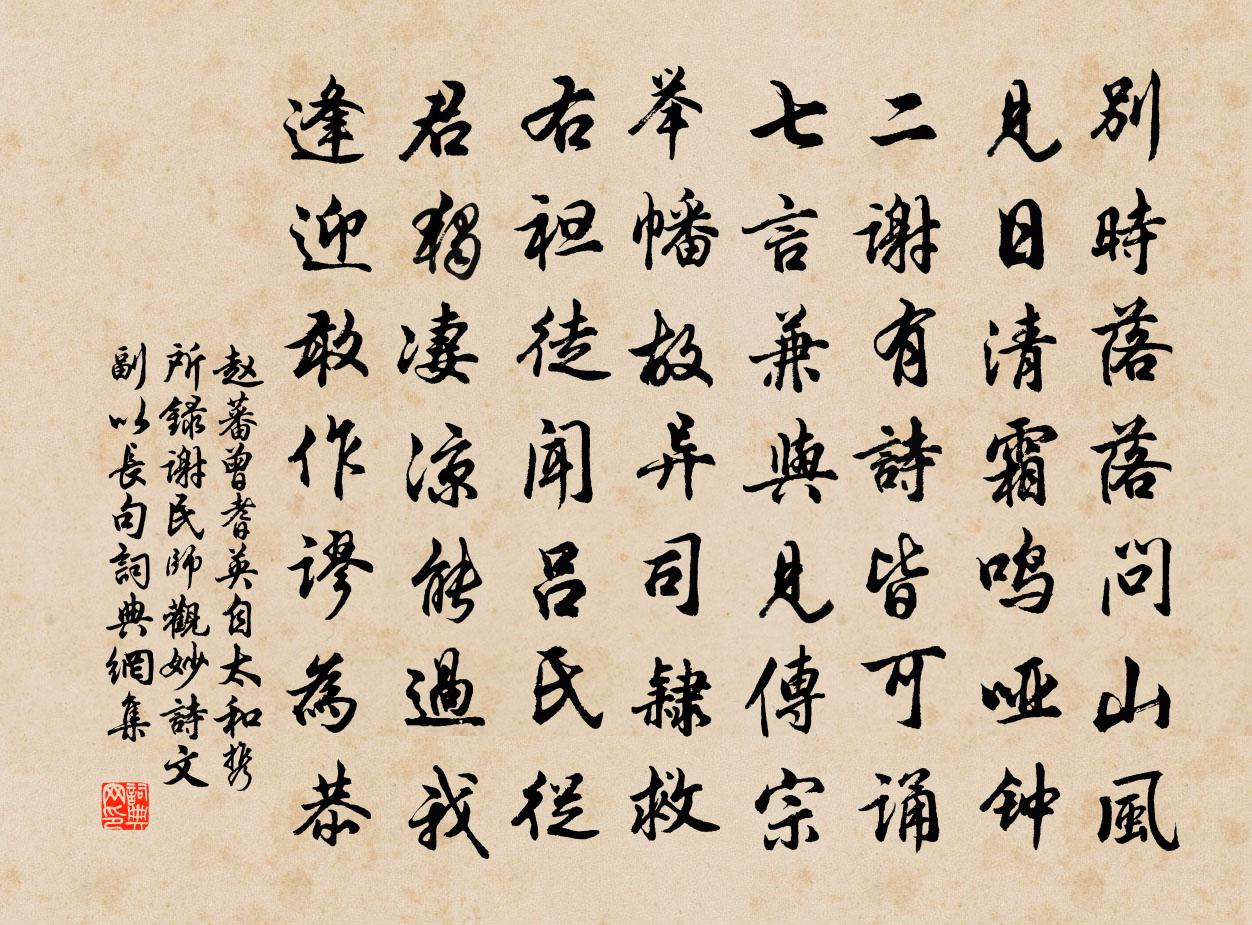 別時落落問山風
見日清霜鳴哑钟
二谢有詩皆可诵
七言兼與見傳宗
举幡故异司隸救
右袒徒闻吕氏從
君獨凄凉能過我
逢迎敢作谬為恭
赵蕃曾耆英自太和携
所録谢民师觀妙詩文
副以長句詞典網集
詞典网印